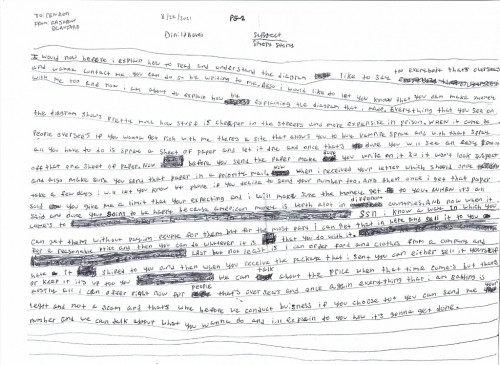 TO: PENDON
FROM: RASHAUN
BLANFORD
8/22/2021
PG-2
Diniidham
Subject
Photo Storm
I would now before i explain how to read and understand the diagram like to save to everybody thats overseas
and wanna contact me you can do so by writing to me. Also i would like to let you know that you can make money
with me too and now i am about to explain how by explaining the diagram that i made. Everything that you see on
the diagram shows pretty much how stuff is cheaper in the streets and more expensive in prison. When it came to
people overseas if you wanna get rich with me there's a site that shows you to buy vampire spray and with that spray
all you have to do is spray a sheet of paper and let it dry and once that's done you will see an easy
off that one sheet of paper. Now before you send the paper make you write on it so it wont look suspect
and also make sure you send that paper in priority mail. When i received your letter which should only
take a few days i will let you know by phone if you decide to send your number too. And then once i get that paper
you give me a limit that your expecting and i will make sure the money get to your its an
said and done you going to be happy because american money is worth alot in different countries. And now when it
came to SSN i know a way in which you
can get them without paying people for them but for the most part i can get that in here and sell it to you
for a reasonable price and then you can do whatever it is that you do with it.
last but not least i can order food and clothes from a company and
have it shiped to you and then when you receive the package that i sent you can either sell it yourself
or keep it its up to you we can talk about the price when that time comes but that's
mostly all i can offer right now for people that's overseas and once again everything that i am saying is
legit and not a scam and thats why before we conduct buisness if you choose to you can send me your
number and we can talk about what you wanna do and i'll explain to you how it's gonna get done.